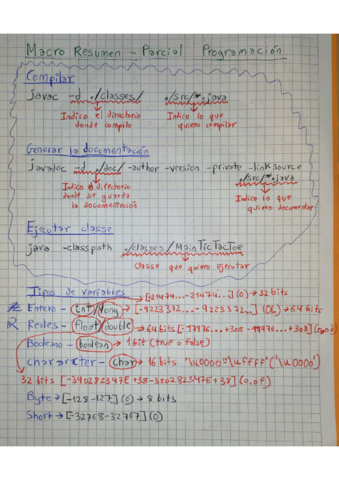 Macro Resumen - Parcial Programación
Compilar
javac -d ./classes/ ./src/*.java
Indico el directorio donde compilo
Indico lo que quiero compilar
Generar la documentación
javadoc -d ./doc/ -author -version -private -linksource
./src/*.java
Indico el directorio donde se guarda la documentación
Indico lo que quiero documentar
Ejecutar classe
java -classpath ./classes/ MainTicTacToe
Classe que quiero ejecutar
Tipos de variables
(0) → 32 bits
Entero - int/long (0L) → 64 bits
Reales - float/double → 64 bits
Booleano - boolean → 1 bit (true o false)
char → 16 bits '\u0000' '\uffff' ('\u0000')
32 bits (0.0f)
Byte → [-128-127] (0) → 8 bits
Short → [-32768-32767] (0)